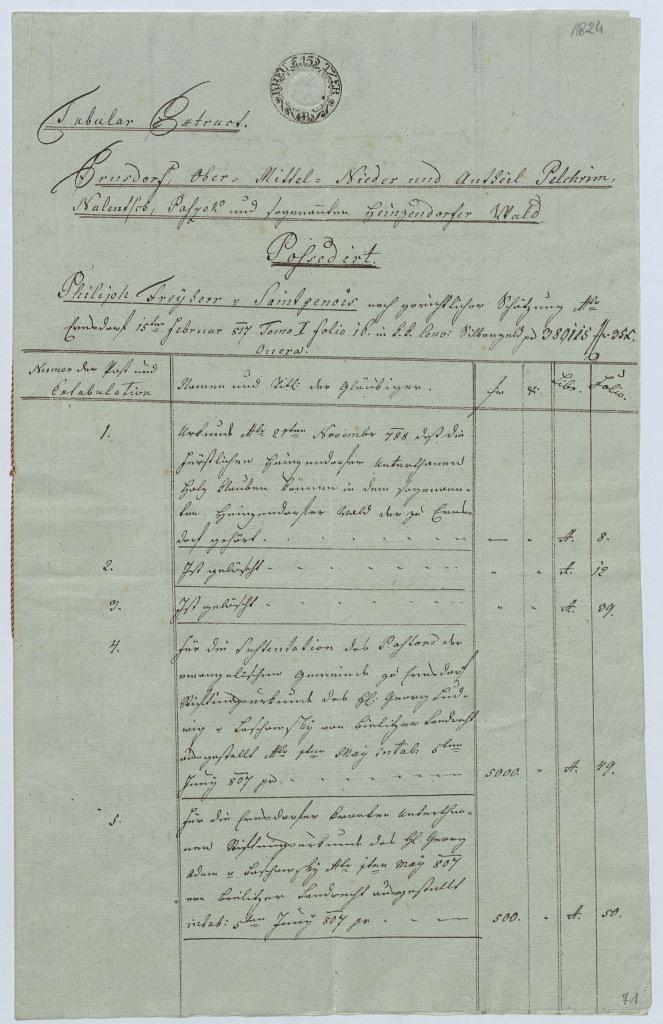 1824
KREU 15 TZER
Tabular Extract.
Ernsdorf, Ober- Mittel- Nieder und Antheil Pelchrim,
Nalentsch, Paszek und sogenannten Heinzendorfer Wald
Possedirt.
Philiph Freyherr v Saintgenois nach gerichtlicher Schätzung dto
Ernsdorf 15ten Februar 817 Tomo I folio 16. in k.k. Conv: Silbergeld pr 380115 fr 35 x.
Onera.
Numer der Post und Extabulation
Namen und Titl: der Gläubiger.
fr
x.
Libr.
Folio.
1.
Urkunde dto 2ten November 788 daß die
fürstlichen Heinzendorfer Unterthanen
Holz klauben können in dem sogenann-
ten Heinzendorfer Wald der zu Erns-
dorf gehört - — " A. 8.
2. Ist gelöscht - " " A. 12
3. Ist gelöscht - " " A. 39.
4. Für die Sustentation des Pastors der
evangelischen Gemeinde zu Ernsdorf
Stiftungsurkunde des H: Georg Lud-
wig v Laschowsky von Bielitzer Landrecht
ausgestellt dto 1ten May intab: 5ten
Juny 807 pr - 5000. " A. 49.
5. Für die Ernsdorfer kranken Untertha-
nen Stiftungsurkunde des H: Georg
Adam v Laschowsky dto 1ten May 807
von Bielitzer Landrecht ausgestellt
intab: 5ten Juny 807 pr - 500. " A. 50.
71